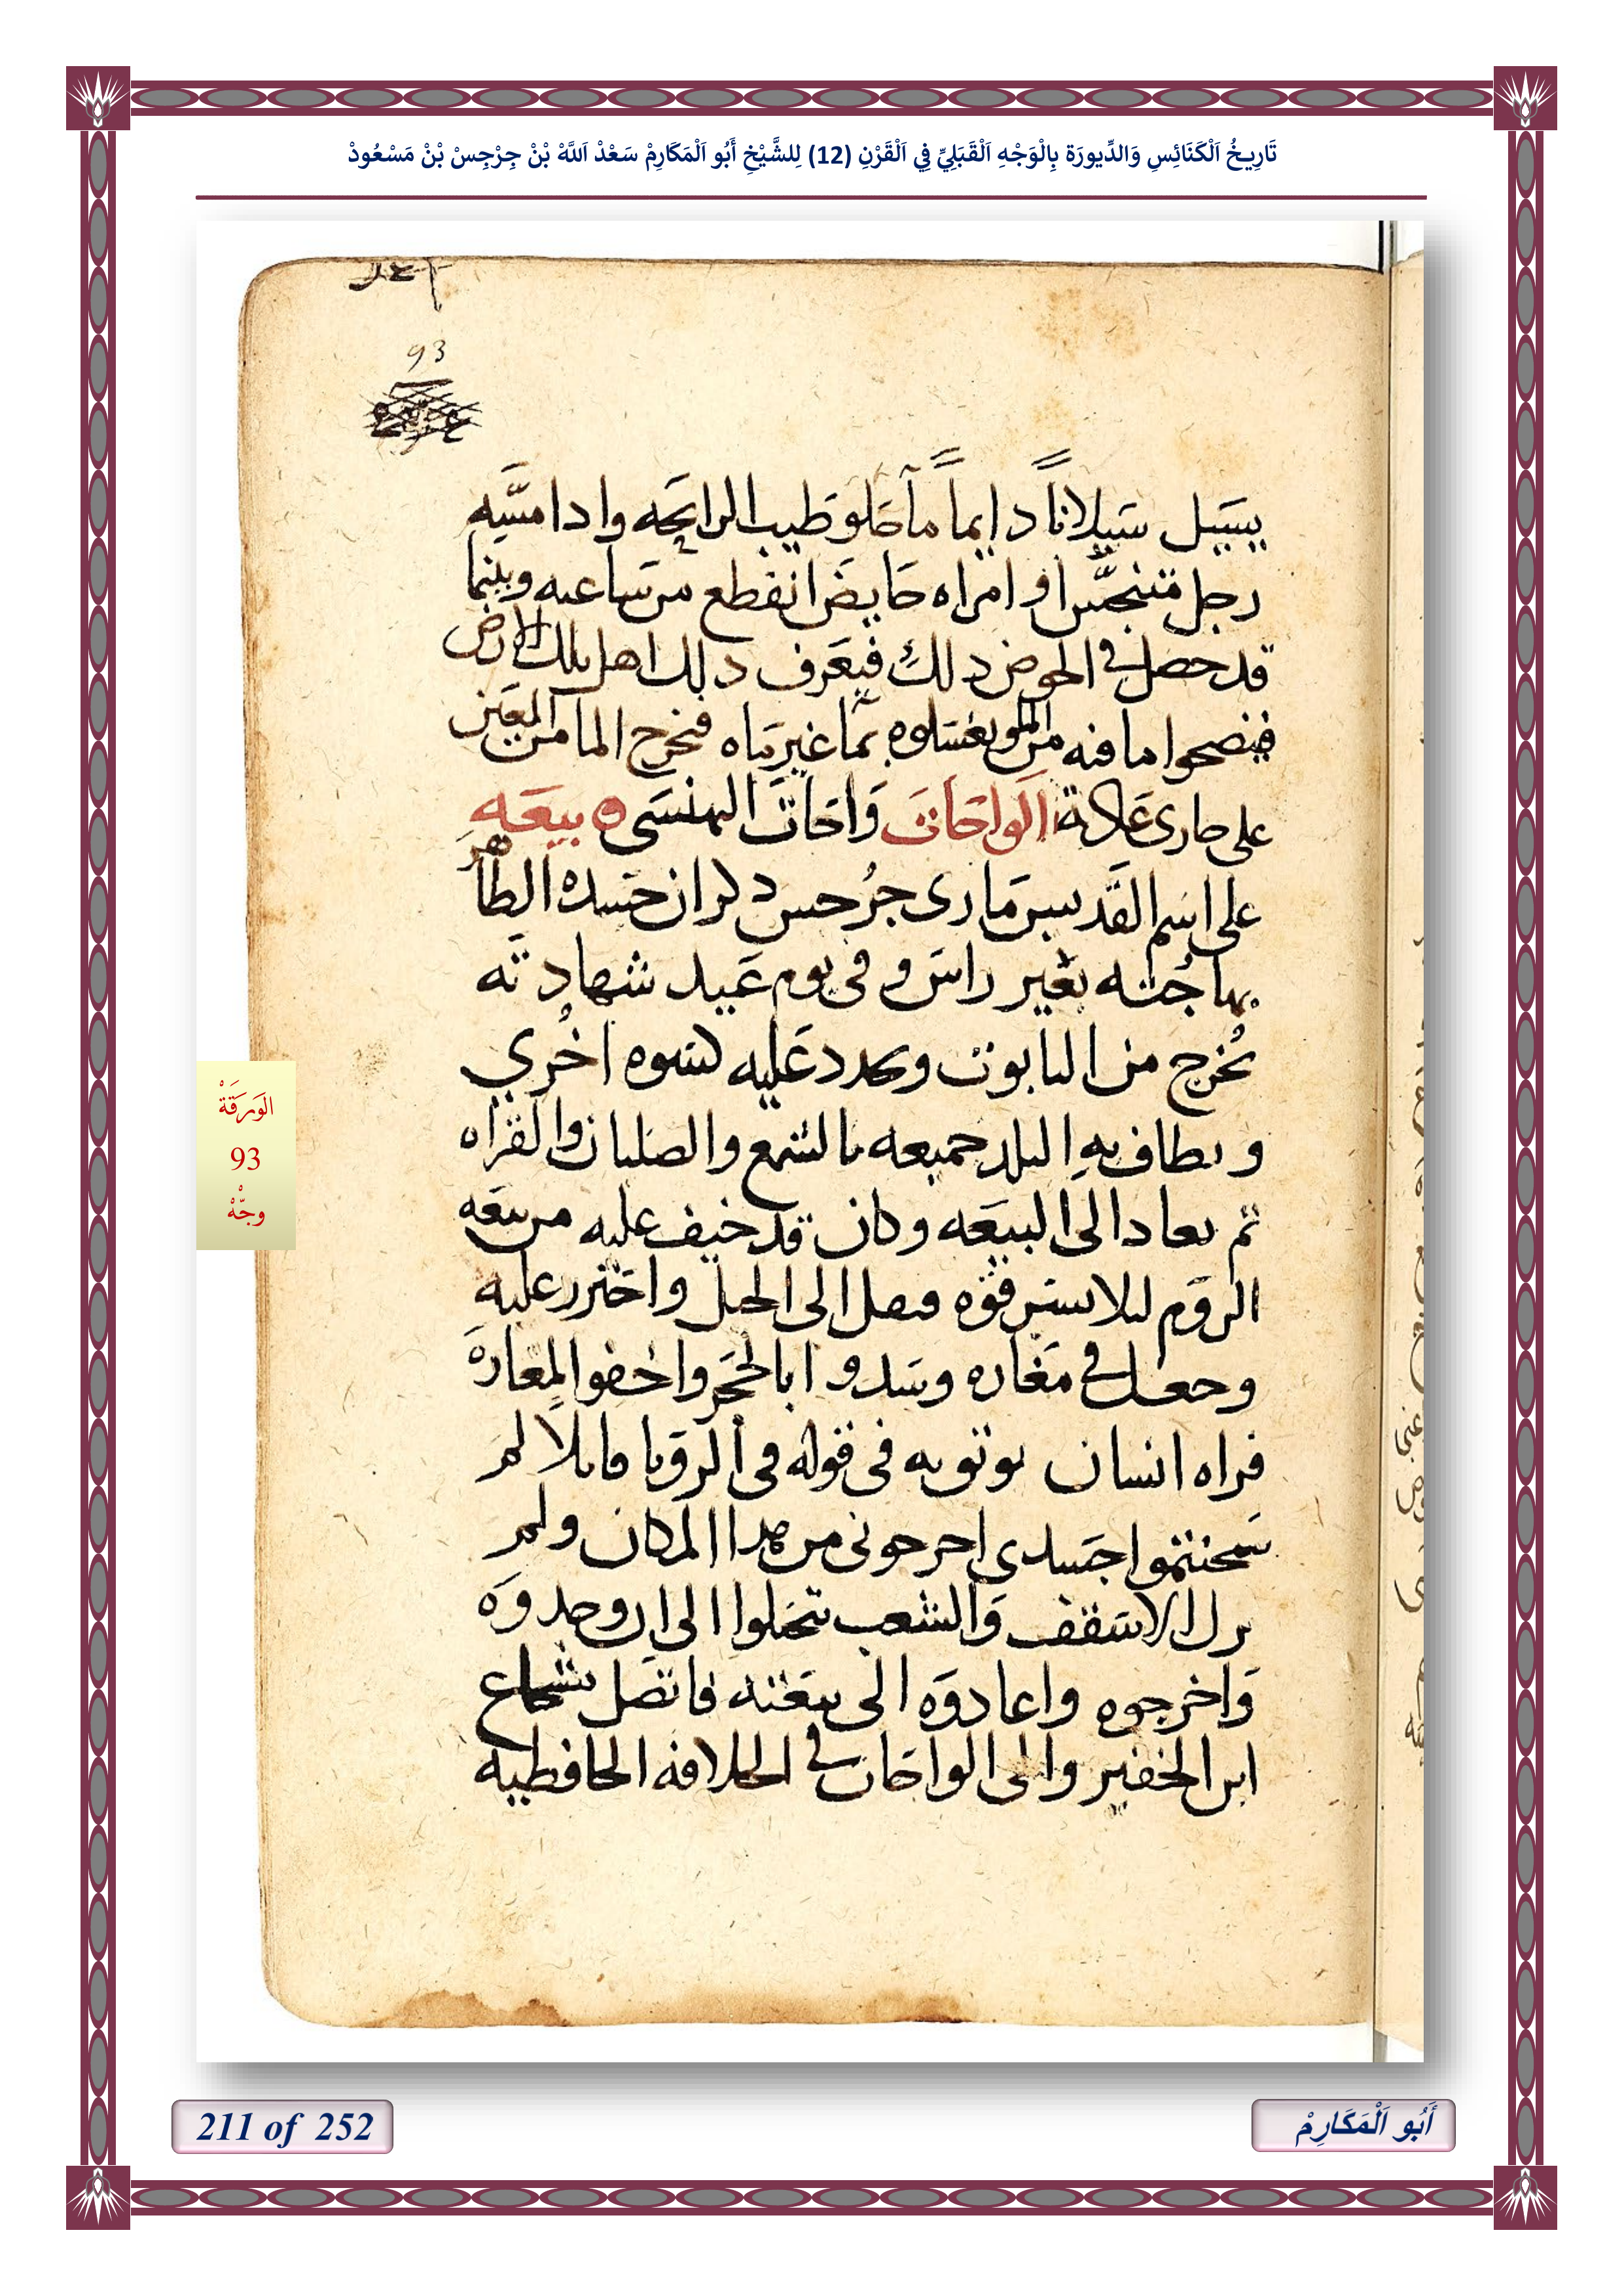 تَارِيخُ اَلْكَنَائِسِ وَالدِّيورَة بِالْوَجْهِ اَلْقَبَلِيِّ فِي اَلْقَرْنِ (12) لِلشَّيْخِ أَبُو اَلْمَكَارِمْ سَعْدْ اَللَّهْ بْنْ جِرْجِسْ بْنْ مَسْعُودْ
93
يسيل سيلاناً دايماً مآ حلو طيب الرايحه وادا مسّه
رجل متنجّس او امراه حايض انقطع من ساعته وبينما
قد حصل في الحوض دلك فيعرف دلك اهل تلك الارض
فينضحوا ما فيه من المو يغسلوه بمآ غير مياه فيخرج الما من المعين
على جارى عادة الواحات وَاحَات البهنسَى ه بيعَه
على اسم القديس مارى جُرجس دكر ان جسده الطاهر
بها جُثته بغير راس و فى يوم عَيد شهادته
تُخرج من التابوت ويجدد عَليه كسوه اخُري
و يطاف به البلد جميعه بالشمع والصلبان والقراه
ثم يعاد الى البيعَه وكان قد خيف عليه من بيعَه
الروم ليلا يسرقوه فنقل الى الجبل واحترز عليه
وجعل في مغاره وسدوا بالحجَر واخفوا المغارة
فراه انسان يوثق به فى قوله فى الرويا قايلا لم
سجنتموا جسدى اخرجونى من هدا المكان ولم
يزل الاسقف وَالشعب يتحَيلوا الى ان وجدوَه
وَاخرجوه واعادوَه الى بيعَته فاتصل بشجاع
ابن الخفير والى الواحات في الخلافه الحافظيه
الوَرَقَةْ
93
وجّهْ
211 of 252
أَبُو اَلْمَكَارِمْ